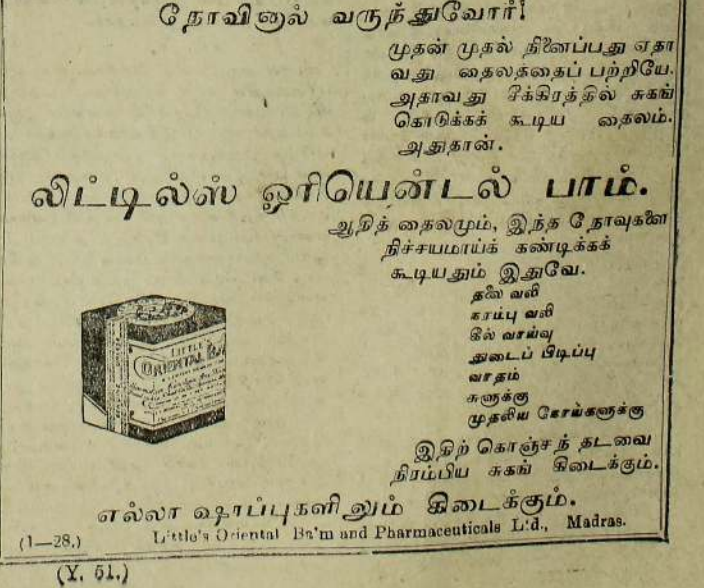 நோவினால் வருந்துவோர்!
முதன் முதல் நினைப்பது ஏதா
வது தைலத்தைப் பற்றியே.
அதாவது சீக்கிரத்தில் சுகங்
கொடுக்கக் கூடிய தைலம்.
அதுதான்.
லிட்டில்ஸ் ஓரியென்டல் பாம்.
ஆதித் தைலமும், இந்த நோவுகளை
நிச்சயமாய்க் கண்டிக்கக்
கூடியதும் இதுவே.
தலை வலி
நரம்பு வலி
கீல் வாய்வு
துடைப் பிடிப்பு
வாதம்
சுளுக்கு
முதலிய நோய்களுக்கு
LITTLE
ORIENTAL BA
இதிற் கொஞ்சந் தடவை
நிரம்பிய சுகங் கிடைக்கும்.
எல்லா ஷாப்புகளிலும் கிடைக்கும்.
(1—28.) Little's Oriental Ba'm and Pharmaceuticals Ltd., Madras.
(Y. 51.)